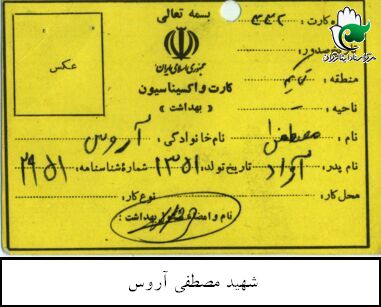 بسمه تعالی
شماره کارت : ۳۳۲
تاریخ صدور :
جمهوری اسلامی ایران
عکس
منطقه :
کارت واکسیناسیون
« بهداشت »
ناحیه :
نام : مصطفی نام خانوادگی : آروس
نام پدر : آزاد تاریخ تولد : ۱۳۵۱ شماره شناسنامه :
محل کار : نوع کار :
نام و امضاء بهداشت :
شهید مصطفی آروس